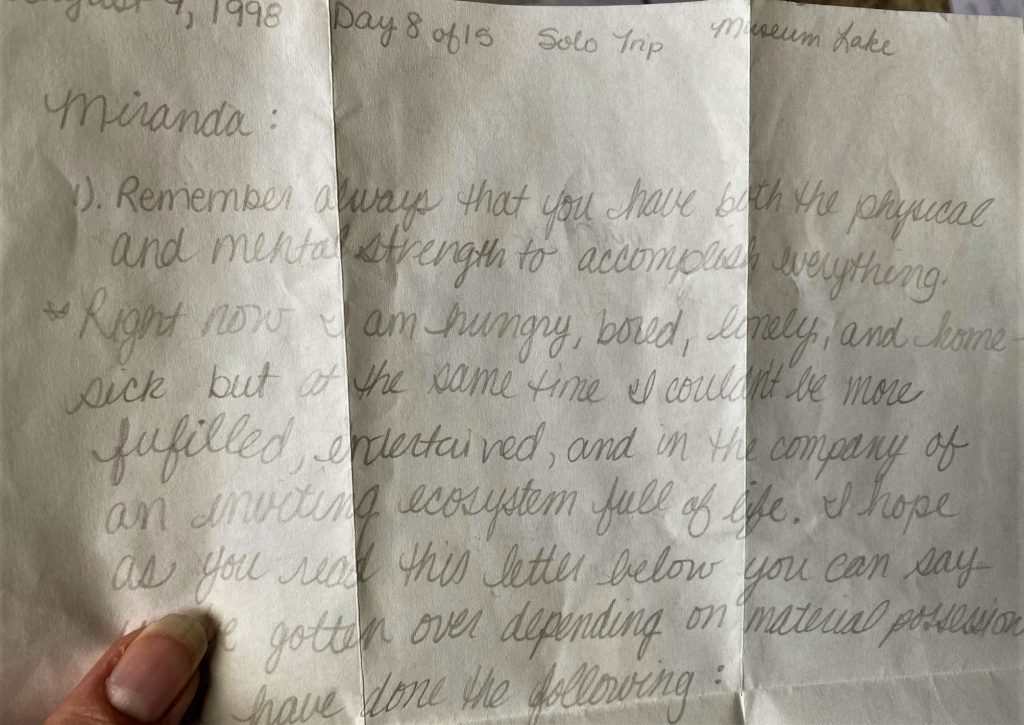 August 9, 1998 Day 8 of 15 Solo Trip Museum Lake
Miranda:
1). Remember always that you have both the physical
and mental strength to accomplish everything.
* Right now I am hungry, bored, lonely, and home-
sick but at the same time I couldn't be more
fufilled, entertained, and in the company of
an inviting ecosystem full of life. I hope
as you read this letter below you can say
gotten over depending on material possession
have done the following: